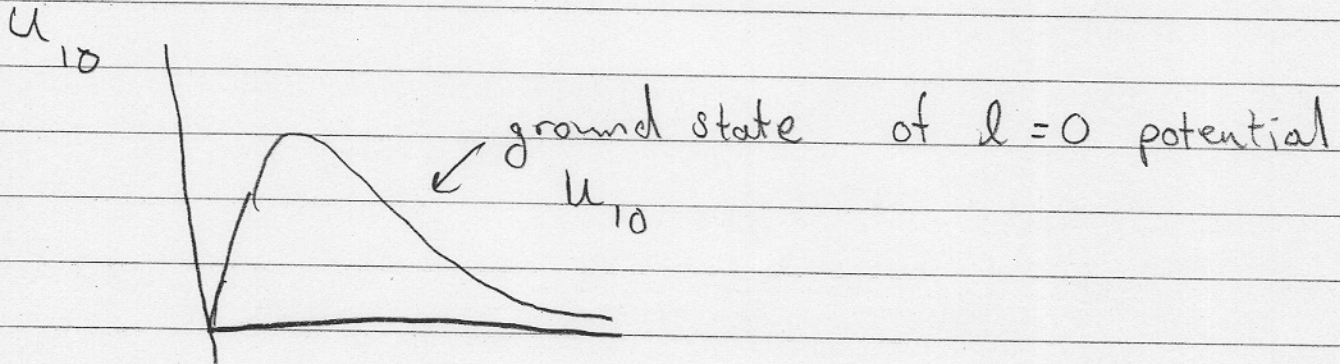 u₁₀
ground state of l = 0 potential
u₁₀